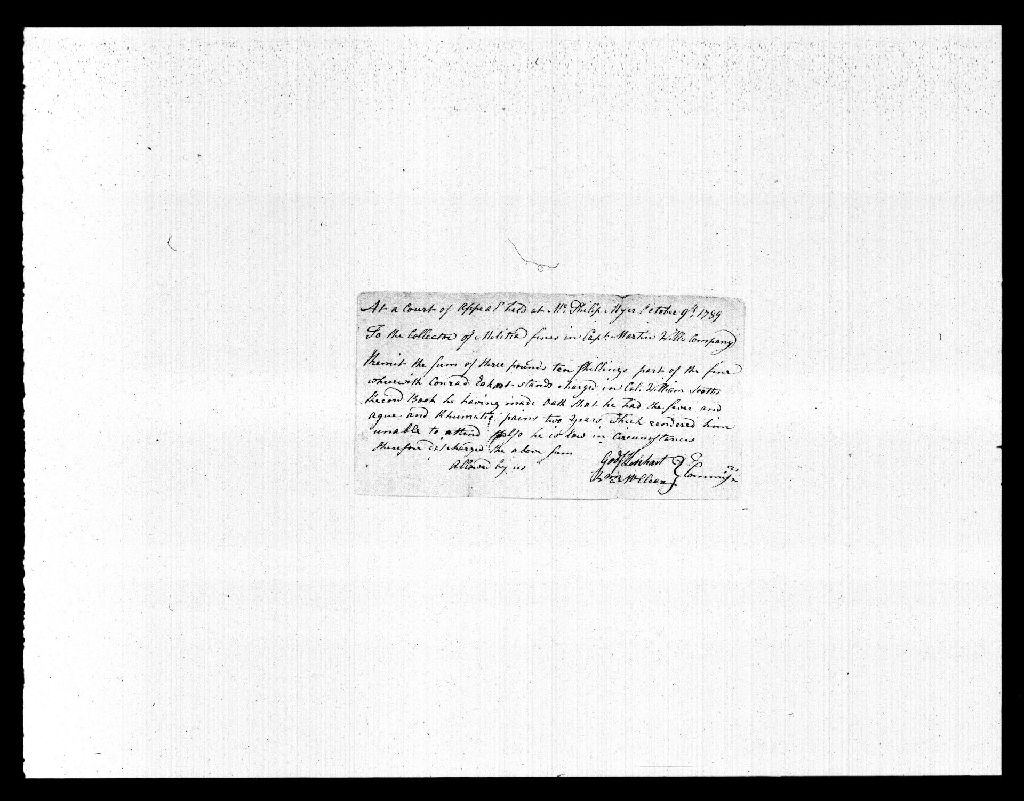 At a Court of Appeal held at Mr. Philip Myer October 9th 1789
To the Collector of Militia fines in Capt. Martin Will Company
Remit the Sum of three pounds ten Shillings part of the fine
wherewith Conrad stands charged in Col. William Scotts
Record Book he having made Oath that he had the fever and
ague and Rhumatic pains two years which rendered him
unable to attend also he is low in Circumstances
therefore discharged the above Sum
Allowed by us
Lenhart